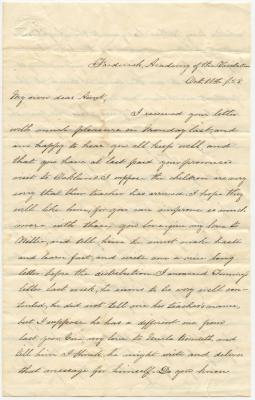 Frederick, Academy of the Visitation
Oct. 18th /58
My own dear Aunt,
I received your letter
with much pleasure on Monday last and
am happy to hear you all keep well and
that you have at last paid your promised
visit to Oakland. I suppose the children are very
sorry that their teacher has arrived. I hope they
will like him, for you can improve so much
more with those you love give my love to
Willie, and tell him he must make haste
and learn fast, and write me a nice long
letter before the distribution. I answered
letter last week, he seems to be very well con-
tented, he did not tell me his teacher's name,
but I suppose he has a different one from
last year. Give my love to Uncle and
tell him I think he might write and deliver
that message for himself. Do you know